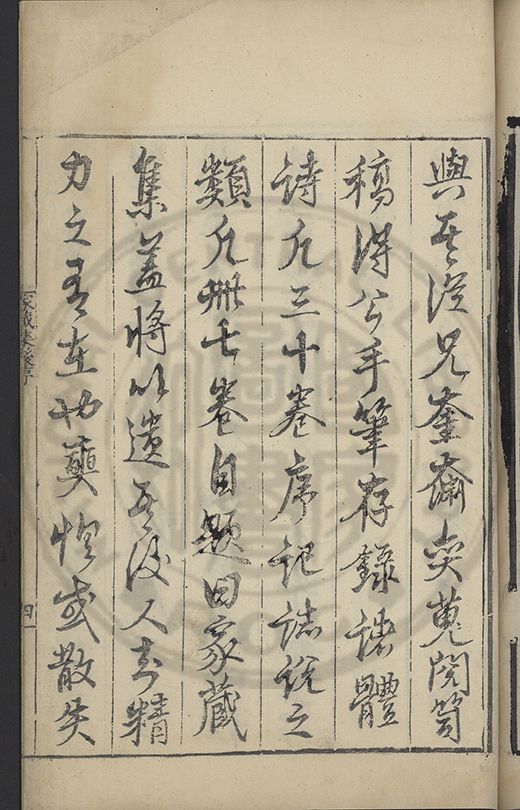 與吾從兄奎齋奭蒐閱笥
稿得公手筆存錄諸體
詩凡三十卷序記誌說之
類凡卌七卷自題曰家藏
集蓋將以遺吾後人者精
力之所在也奭惟或散失
家藏集後序
四